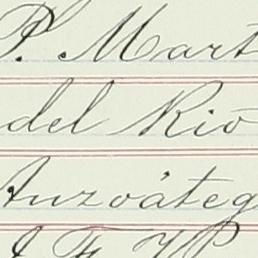 P. Mart
del Rio
Anzoáteg